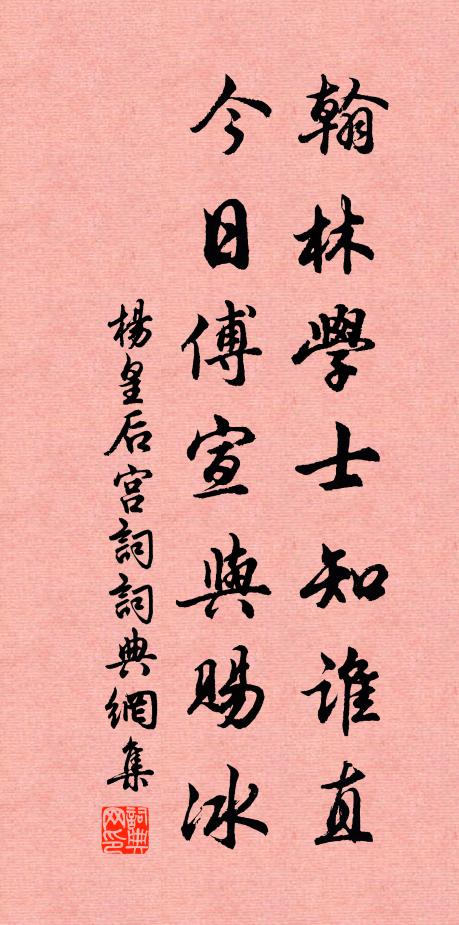 翰林學士知誰直
今日傅宣與賜冰
楊皇后宮詞詞典網集
詞典網印